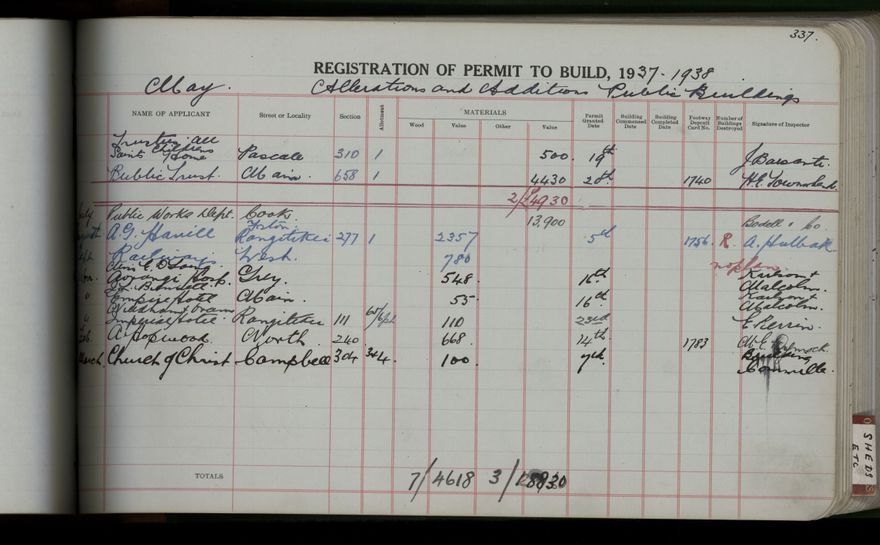 337.
REGISTRATION OF PERMIT TO BUILD, 1937-1938
May. Alterations and Additions Public Buildings
NAME OF APPLICANT Street or Locality Section Allotment MATERIALS Permit Granted Date Building Commenced Date Building Completed Date Footway Deposit Card No. Number of Buildings Destroyed Signature of Inspector
Wood Value Other Value
Trustees All
Saints Childrens Home Pascal 310 1 500. 19th
Public Trust. Main. 658 1 4430 28th 1740 H.E. Townshend
2/£4930
July Public Works Dept. Cook. 13,900 Bodell & Co.
A.G. Harill Rangitikei 277 1 2357 5th 1756. R. A. Hulbak
Railways West. 780 no plan
Hosp. Grey. 548. 16th Malcolm.
" Empire Hotel Main. 55. 16th Malcolm.
" Imperial Hotel. Rangitikei 111 110 23rd E Perrin.
Feb. A Hopwood. North. 240 668. 14th 1783
March. Church of Christ Campbell 304 344. 100 7th
TOTALS 7/4618 3/18830
SHEDS
ETC